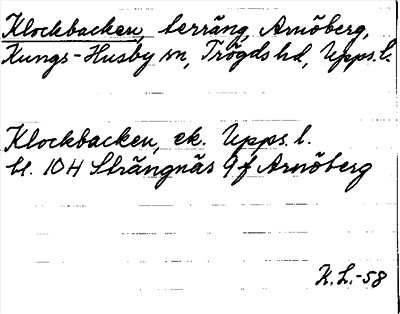 Klockbacken, terräng, Arnöberg,
Kungs-Husby sn, Trögds hd, Upps. l.
Klockbacken, ek. Upps. l.
bl. 10H Strängnäs 9f Arnöberg
K.L.-58